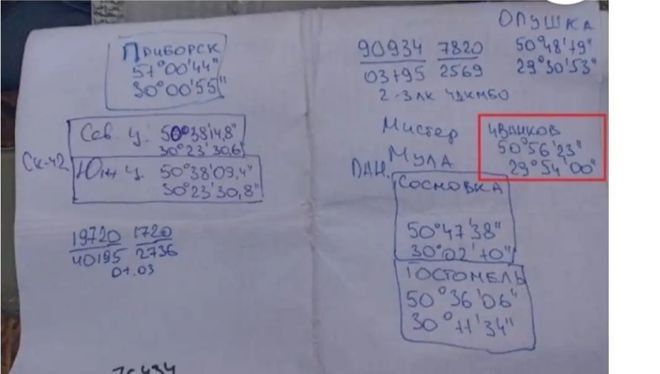 Приборск
51°00'44"
30°00'55"
Сев. ц. 50°38'14,8"
30°23'30,6"
Ск-42
Южн ц. 50°38'09,4"
30°23'30,8"
19720 1720
40195 2736
01.03
90934 7820
03495 2569
ОПУШКА
50°48'49"
29°30'53"
Мистер
Мула
ИВАНКОВ
50°56'23"
29°54'00"
СОСНОВКА
50°47'38"
30°02'40"
ГОСТОМЕЛЬ
50°36'06"
30°11'34"